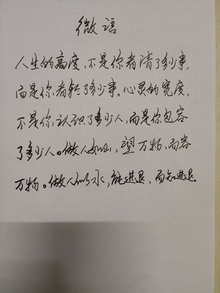 微语
人生的高度,不是你看清了多少事,
而是你看轻了多少事。心灵的宽度,
不是你认识了多少人,而是你包容
了多少人。做人如山,望万物,而容
万物。做人似水,能进退,而知进退。